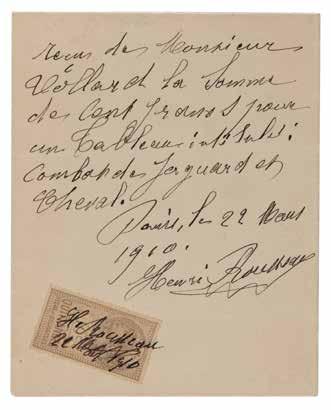 recus de Monsieur
Vollard la Somme
de Cent francs pour
un Tableau intitulé:
Combat de Jaguard et
Cheval.
Paris, le 22 Mars
1910.
Henri Rousseau
H. Rousseau
22 1910